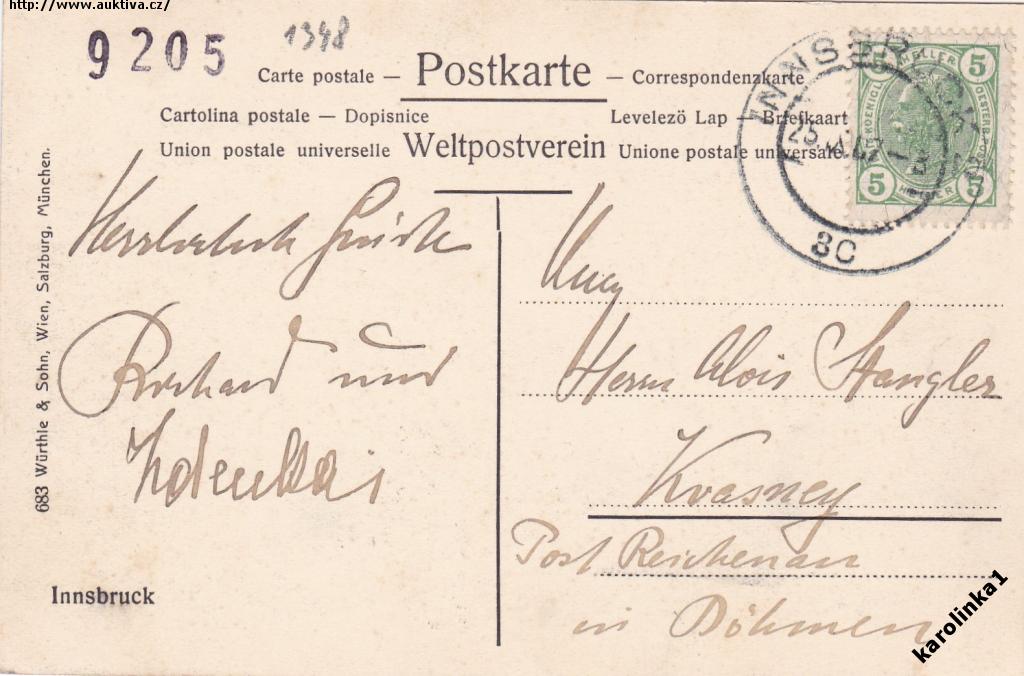 http://www.auktiva.cz/
9205
1348
Carte postale — Postkarte — Correspondenzkarte
Cartolina postale — Dopisnice
Levelező Lap — Briefkaart
Union postale universelle Weltpostverein Unione postale universale
INNSBRUCK
25
3C
5 HELLER 5
5 HELLER 5
683 Würthle & Sohn, Wien, Salzburg, München.
Innsbruck
Grüße
Richard und
Zdenka
Herrn Alois Stangler
Krasney
Post Reichenau
in Böhmen
karolinka1